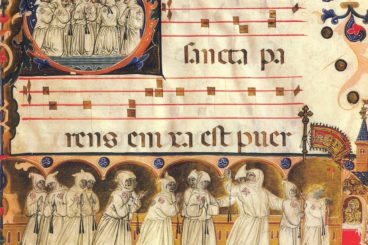 sancta pa
rens eni xa est puer